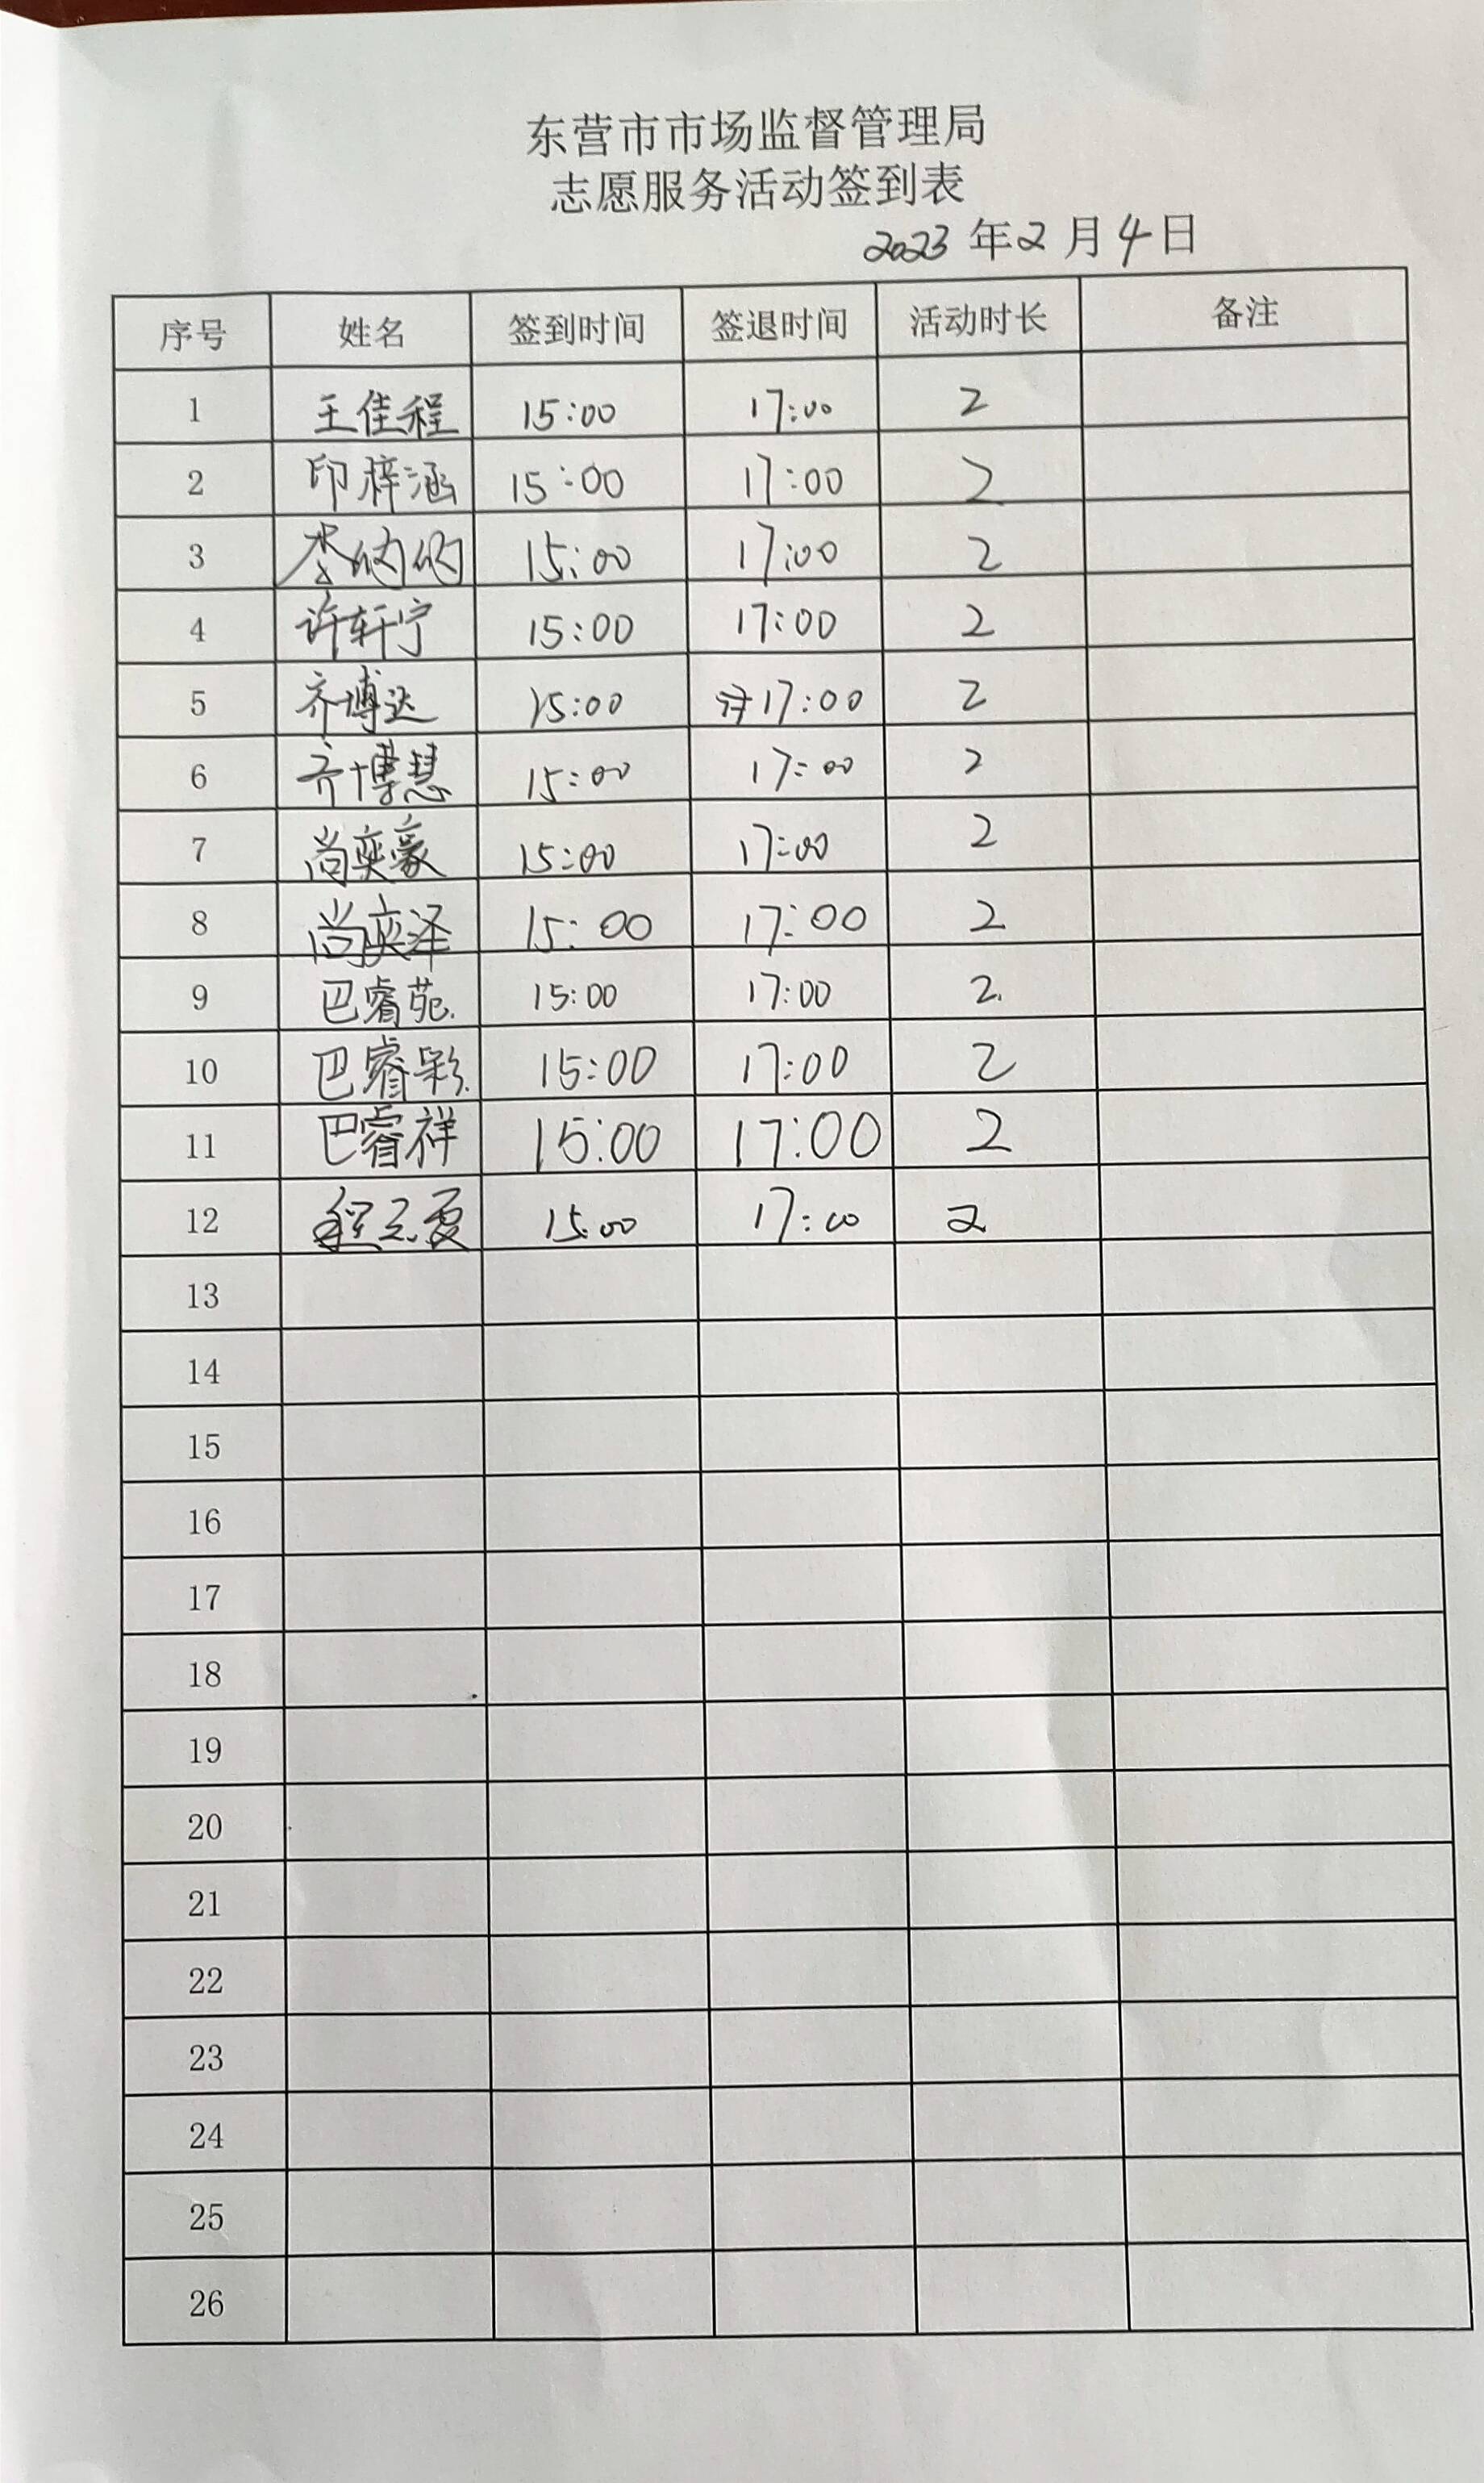 东营市市场监督管理局
志愿服务活动签到表
2023年2月4日
序号 姓名 签到时间 签退时间 活动时长 备注
1 王佳程 15:00 17:00 2
2 印梓涵 15:00 17:00 2
3 李 15:00 17:00 2
4 许轩宁 15:00 17:00 2
5 齐博达 15:00 17:00 2
6 齐博慧 15:00 17:00 2
7 尚奕豪 15:00 17:00 2
8 尚奕泽 15:00 17:00 2
9 巴睿苑. 15:00 17:00 2.
10 巴睿彩. 15:00 17:00 2
11 巴睿祥 15:00 17:00 2
12 15:00 17:00 2
13
14
15
16
17
18
19
20
21
22
23
24
25
26